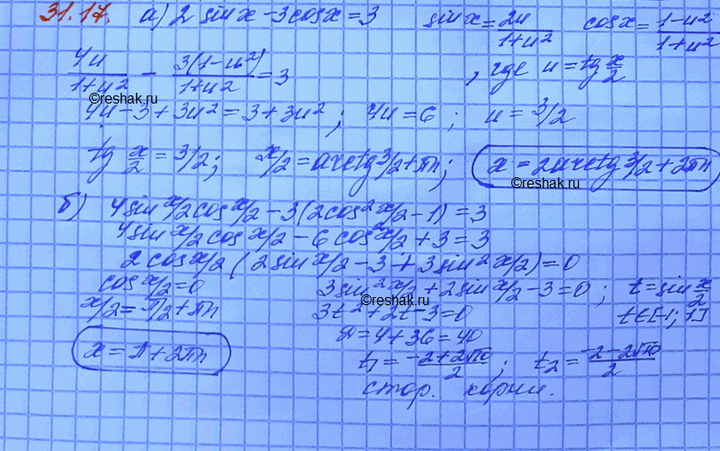 31.17. а) 2 sinx - 3cosx = 3 sinx = 2u/(1+u²) cosx = (1-u²)/(1+u²)
4u/(1+u²) - 3(1-u²)/(1+u²) = 3 , где u = tg x/2
©reshak.ru
4u - 3 + 3u² = 3 + 3u² ; 4u = 6 ; u = 3/2
tg x/2 = 3/2 ; x/2 = arctg 3/2 + πn ; x = 2arctg 3/2 + 2πn
©reshak.ru
б) 4sin x/2 cos x/2 - 3(2cos² x/2 - 1) = 3
4sin x/2 cos x/2 - 6cos² x/2 + 3 = 3
2cos x/2 (2sin x/2 - 3 + 3sin² x/2) = 0
cos x/2 = 0 3sin² x/2 + 2sin x/2 - 3 = 0 ; t = sin x/2
©reshak.ru
x/2 = π/2 + πn 3t² + 2t - 3 = 0 t∈[-1; 1]
D = 4 + 36 = 40
x = π + 2πn t₁ = (-2+2√10)/2 ; t₂ = (-2-2√10)/2
стор. корни.